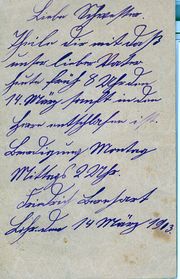 Liebe Schwester
Theile dir mit daß
unser lieber Vater
heute früh 8 Uhr den
14. März sanft in dem
Herrn entschlafen ist.
Beerdigung Montag
Mittags 2 Uhr.
Friedrich
den 14 März 1903